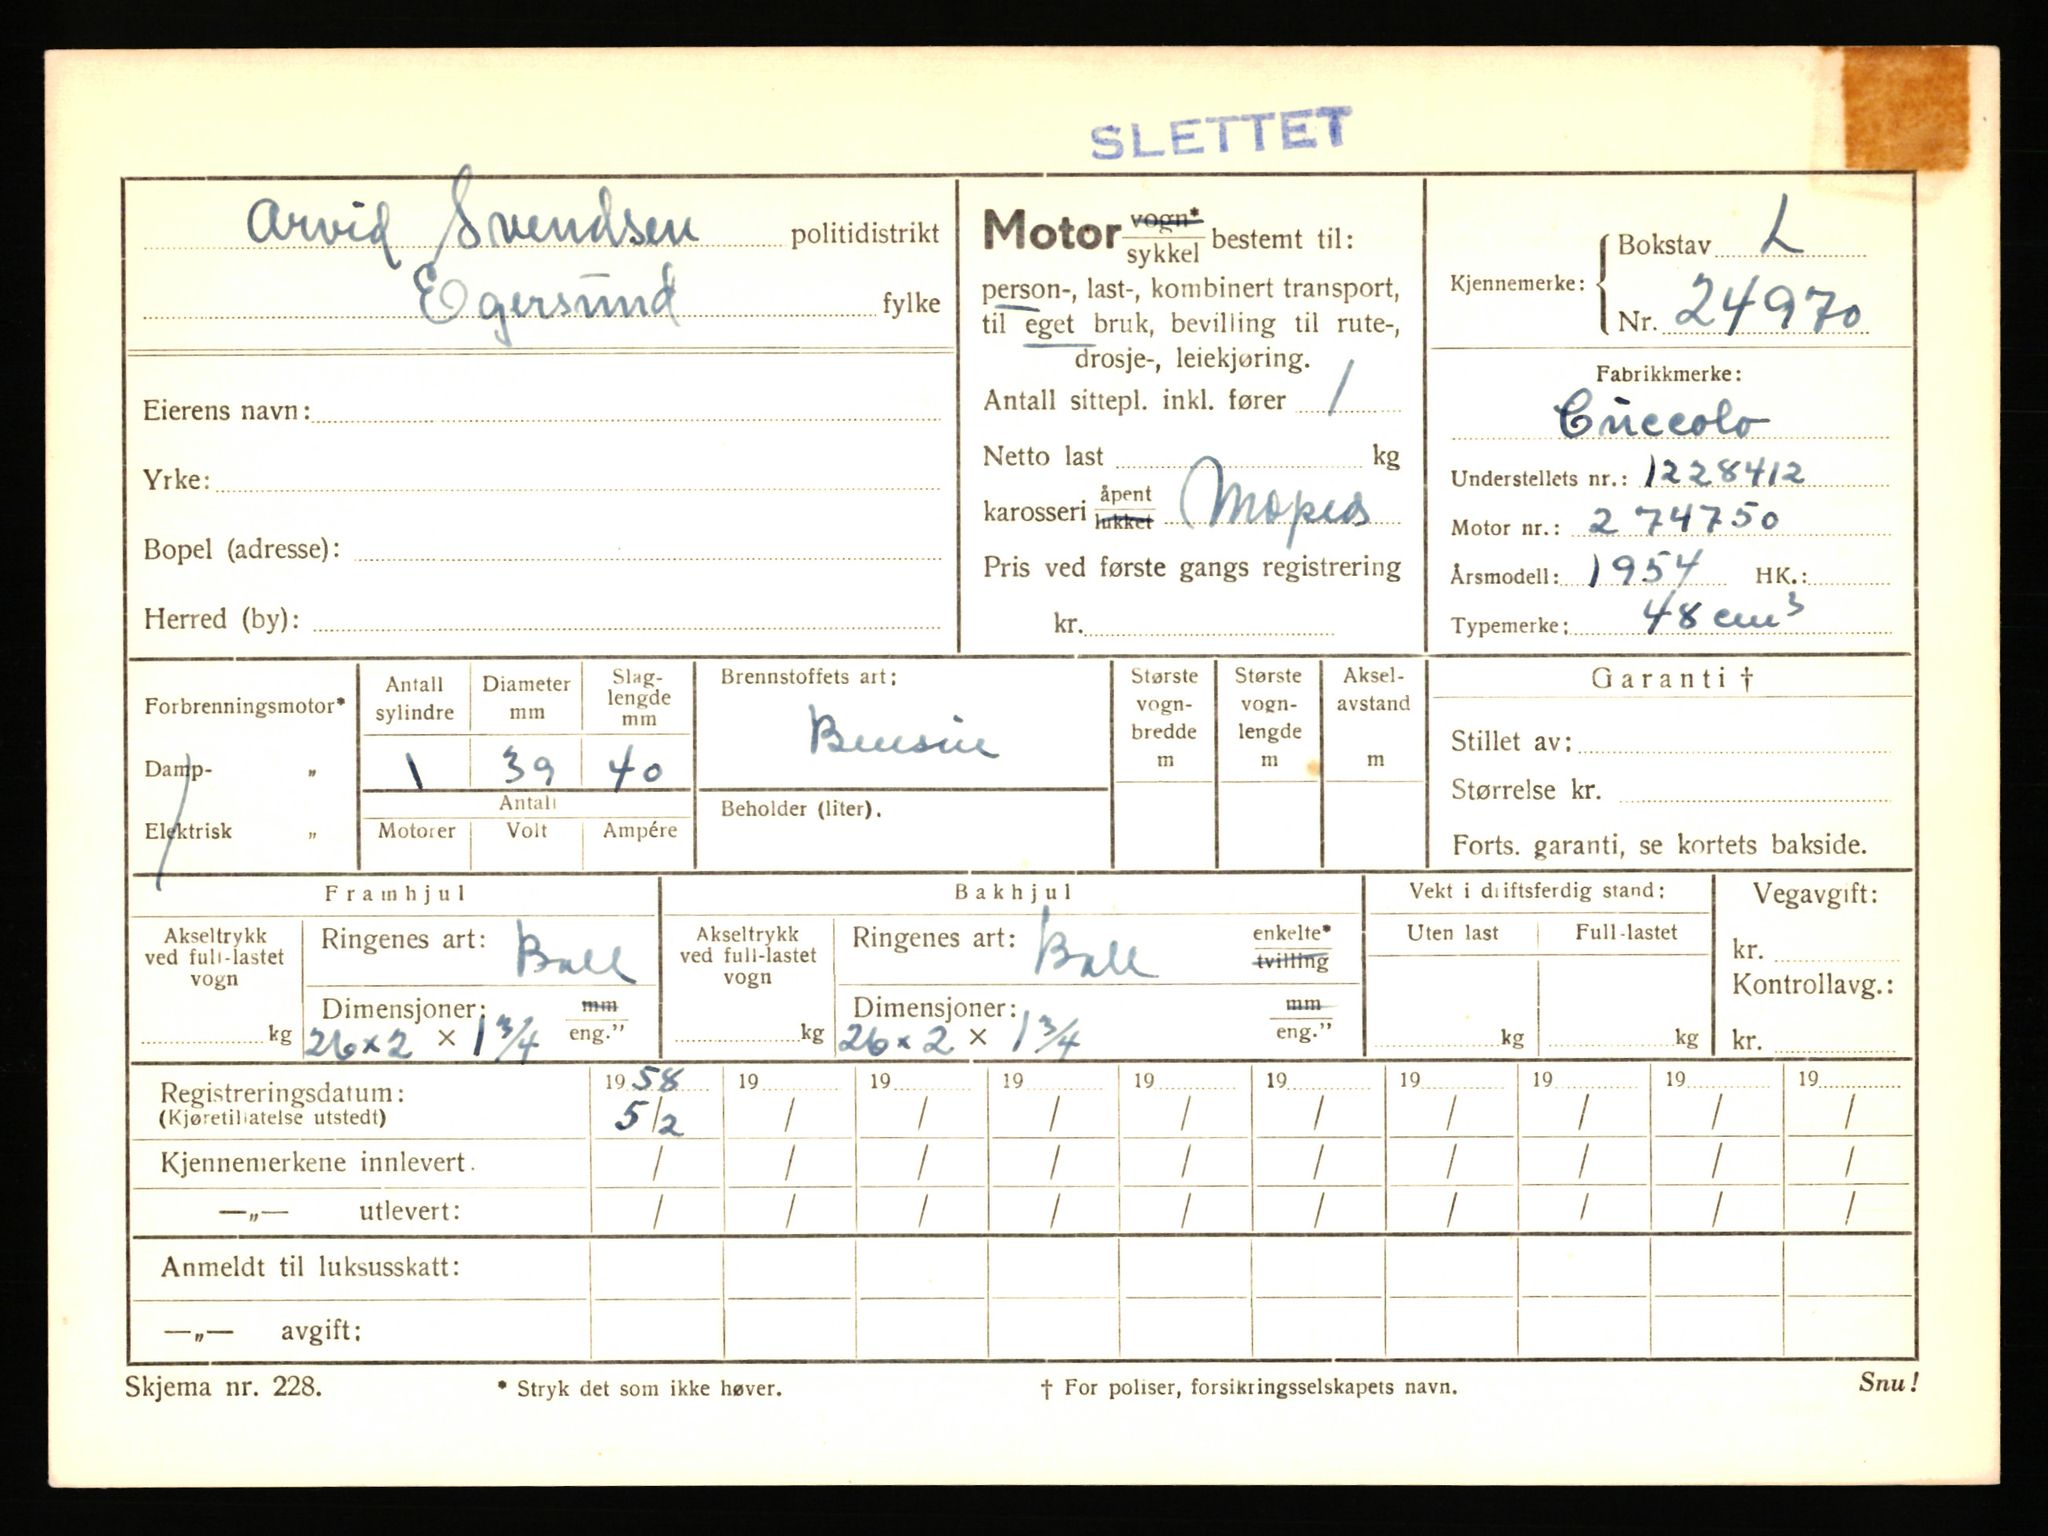 SLETTET
Arvid Svendsen politidistrikt
Egersund fylke
Eierens navn:
Yrke:
Bopel (adresse):
Herred (by):
Motor vogn* / sykkel bestemt til:
person-, last-, kombinert transport,
til eget bruk, bevilling til rute-,
drosje-, leiekjøring.
Antall sittepl. inkl. fører 1
Netto last kg
karosseri åpent / lukket Moped
Pris ved første gangs registrering
kr.
Kjennemerke: Bokstav L
Nr. 24970
Fabrikkmerke:
Cuccolo
Understellets nr.: 1228412
Motor nr.: 274750
Årsmodell: 1954 HK.:
Typemerke: 48 cm³
Forbrenningsmotor*
Damp- „
Elektrisk „
Antall sylindre
Diameter mm
Slag-lengde mm
1 39 40
Antall
Motorer Volt Ampére
Brennstoffets art:
Bensin
Beholder (liter).
Største vogn-bredde m
Største vogn-lengde m
Aksel-avstand m
Garanti †
Stillet av:
Størrelse kr.
Forts. garanti, se kortets bakside.
Framhjul
Akseltrykk ved full-lastet vogn
kg
Ringenes art: Ball
Dimensjoner: mm / eng."
26 x 2 × 1 3/4
Bakhjul
Akseltrykk ved full-lastet vogn
kg
Ringenes art: Ball enkelte* / tvilling
Dimensjoner: mm / eng."
26 x 2 × 1 3/4
Vekt i driftsferdig stand:
Uten last Full-lastet
kg kg
Vegavgift:
kr.
Kontrollavg.:
kr.
Registreringsdatum: 1958 19 19 19 19 19 19 19 19 19
(Kjøretillatelse utstedt) 5/2 / / / / / / / / /
Kjennemerkene innlevert. / / / / / / / / / /
—„— utlevert: / / / / / / / / / /
Anmeldt til luksusskatt:
—„— avgift:
Skjema nr. 228. * Stryk det som ikke høver. † For poliser, forsikringsselskapets navn. Snu!